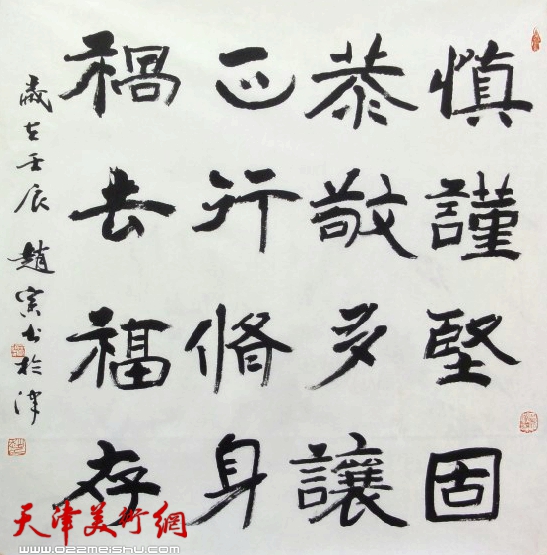 慎謹堅固
恭敬多讓
正行脩身
禍去福存
歲在壬辰 趙寅書於津
天津美術網
www.022meishu.com